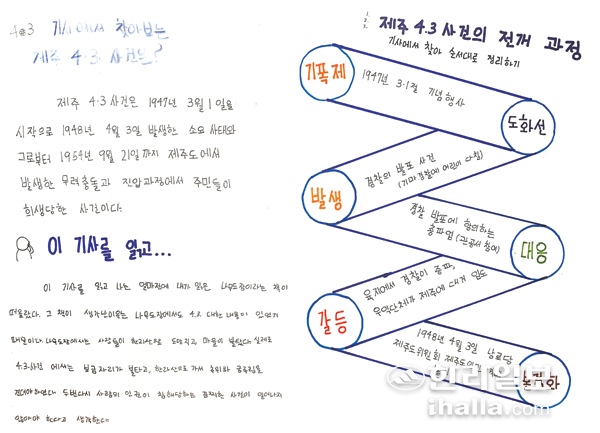 4.3 기사에서 찾아보는
제주 4·3 사건은?
제주 4·3 사건은 1947년 3월 1일을
시작으로 1948년 4월 3일 발생한 소요 사태와
그로부터 1954년 9월 21일까지 제주도에서
발생한 무력충돌과 진압과정에서 주민들이
희생당한 사건이다.
이 기사를 읽고...
이 기사를 읽고 나는 얼마전에 내가 읽은 나무도장이라는 책이
떠올랐다. 그 책이 생각난 이유는 나무도장에서도 4.3 대한 내용이 있었기
때문이다. 나무도장에서는 사람들이 한라산으로 도망치고, 마을이 불탔다. 실제로
4.3사건 에서는 보금자리가 불타고, 한라산으로 가서 추위와 굶주림을
견뎌야하였다. 두번다시 사람의 인권이 침해당하는 끔찍한 사건이 일어나지
않아야 한다고 생각한다.
제주 4.3 사건의 전개 과정
기사에서 찾아 순서대로 정리하기
기폭제
1947년 3·1절 기념행사
도화선
경찰의 발포 사건
(기마경찰에 어린이 다침)
발생
경찰 발포에 항의하는
총파업 (관공서 참여)
대응
육지에서 경찰이 출파,
우익단체가 제주에 대거 입도
갈등
1948년 4월 3일 남로당
제주도위원회
한라일보
ihalla.com